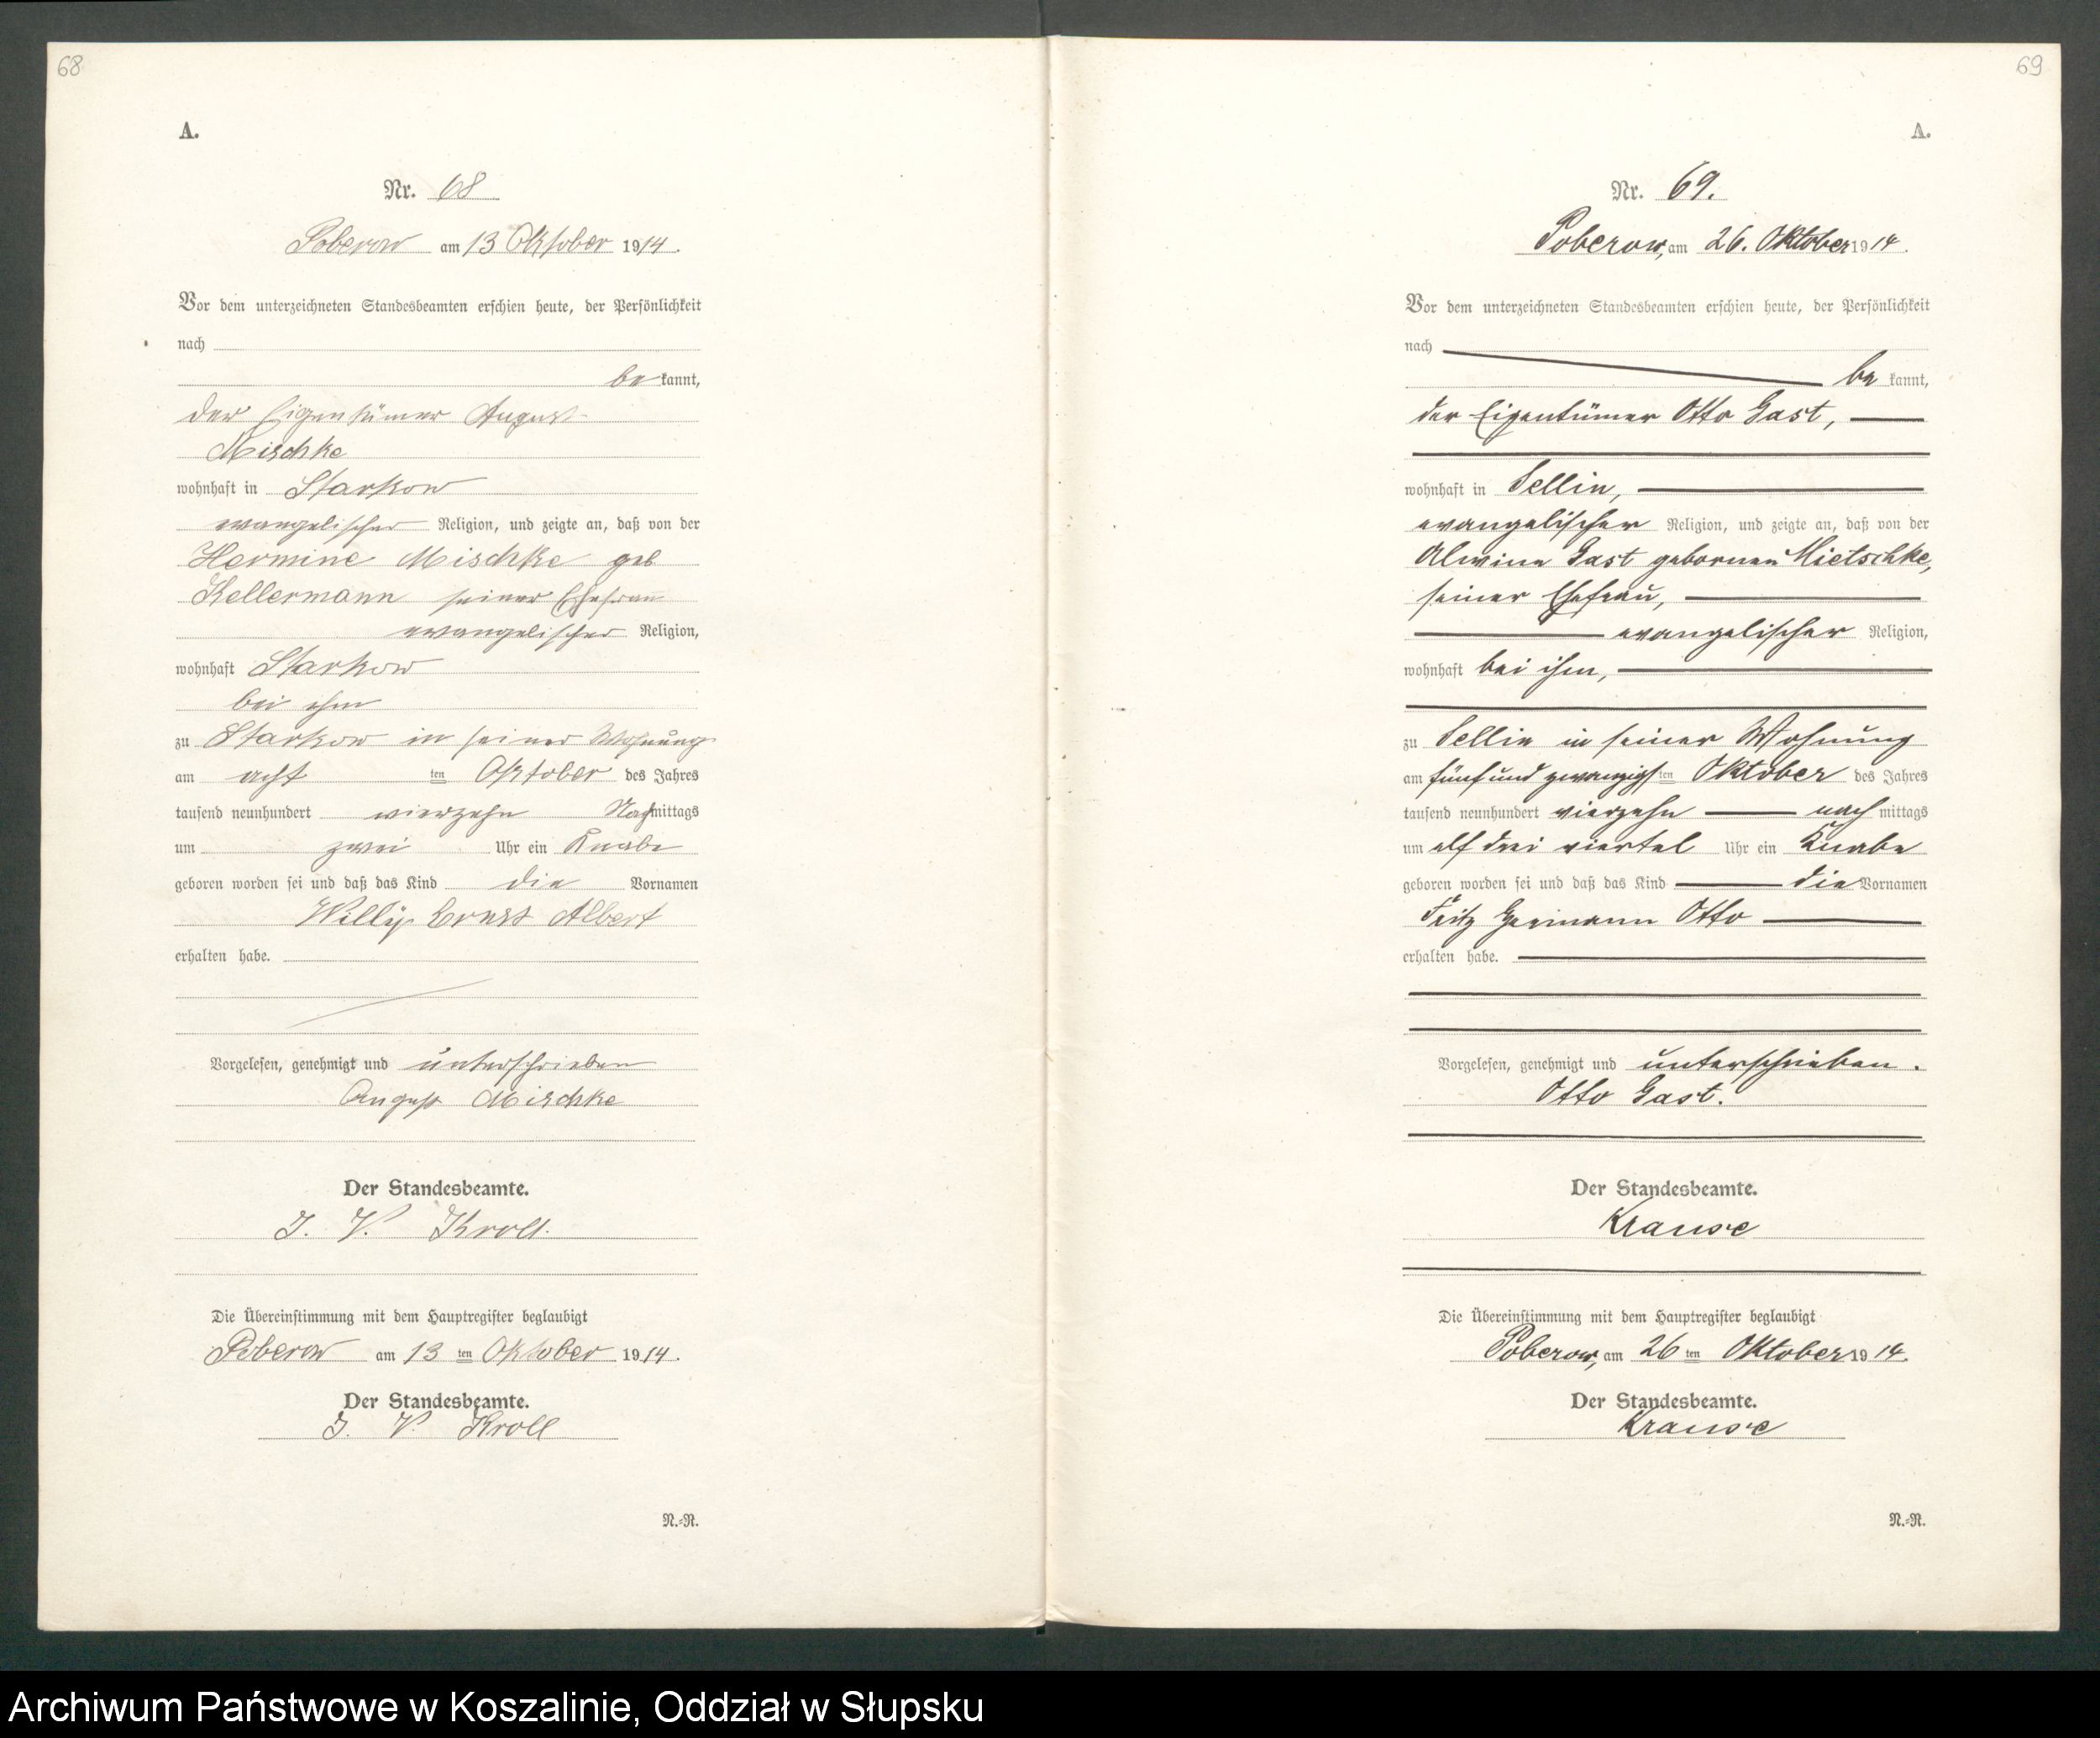 68
A.
Nr. 68
Poberow am 13 Oktober 1914.
Vor dem unterzeichneten Standesbeamten erschien heute, der Persönlichkeit
nach
be kannt,
der Eigentümer August
Mischke
wohnhaft in Starkow
evangelischer Religion, und zeigte an, daß von der
Hermine Mischke geb
Kellermann seiner Ehefrau
evangelischer Religion,
wohnhaft Starkow
bei ihm
zu Starkow in seiner Wohnung
am acht ten Oktober des Jahres
tausend neunhundert vierzehn Nachmittags
um zwei Uhr ein Knabe
geboren worden sei und daß das Kind die Vornamen
Willy Ernst Albert
erhalten habe.
Vorgelesen, genehmigt und unterschrieben
August Mischke
Der Standesbeamte.
I. V. Kroll.
Die Übereinstimmung mit dem Hauptregister beglaubigt
Poberow am 13 ten Oktober 1914.
Der Standesbeamte.
I. V. Kroll
N.-R.
69
A.
Nr. 69.
Poberow, am 26. Oktober 1914.
Vor dem unterzeichneten Standesbeamten erschien heute, der Persönlichkeit
nach
be kannt,
der Eigentümer Otto Gast,
wohnhaft in Sellin,
evangelischer Religion, und zeigte an, daß von der
Alwine Gast gebornen Mietschke,
seiner Ehefrau,
evangelischer Religion,
wohnhaft bei ihm,
zu Sellin in seiner Wohnung
am fünf und zwanzigsten Oktober des Jahres
tausend neunhundert vierzehn nach mittags
um elf drei viertel Uhr ein Knabe
geboren worden sei und daß das Kind die Vornamen
Fritz Hermann Otto
erhalten habe.
Vorgelesen, genehmigt und unterschrieben.
Otto Gast.
Der Standesbeamte.
Krause
Die Übereinstimmung mit dem Hauptregister beglaubigt
Poberow, am 26 ten Oktober 1914.
Der Standesbeamte.
Krause
N.-R.
Archiwum Państwowe w Koszalinie, Oddział w Słupsku